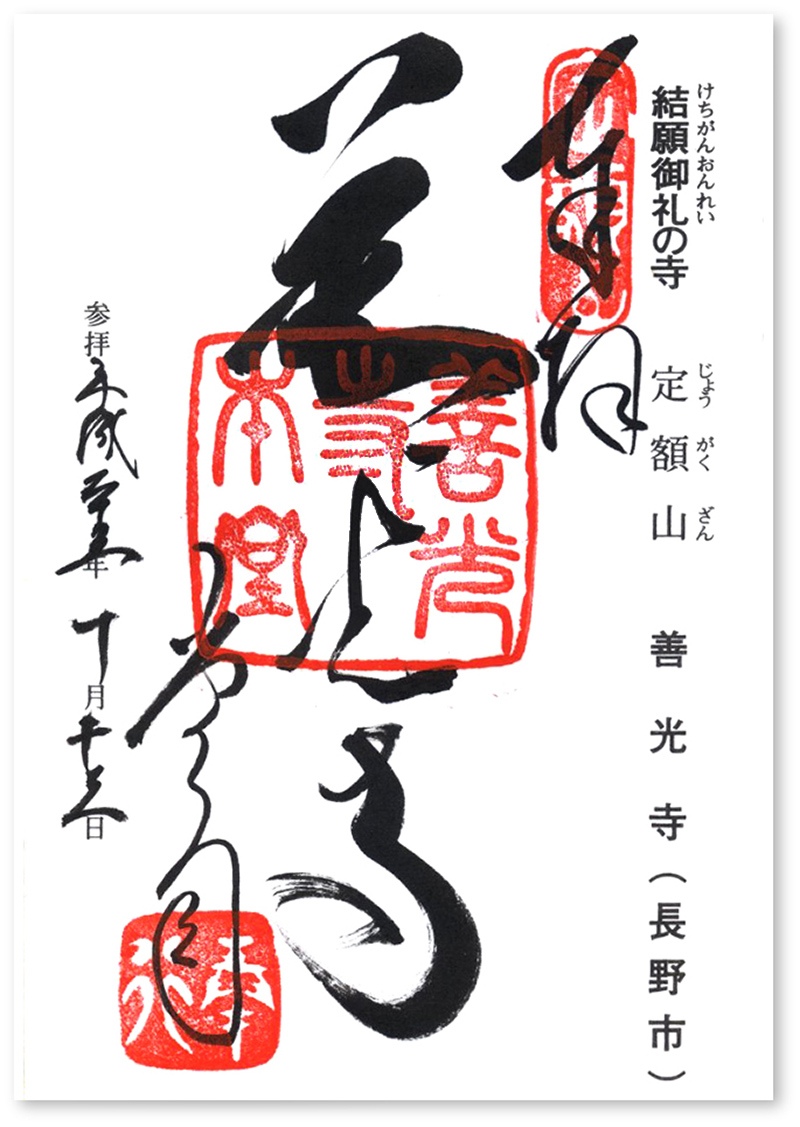 けちがんおんれい
結願御礼の寺
じょう がく ざん
定額山 善光寺(長野市)
奉拝
善光寺
本堂
善光寺
参拝平成二十五年十月十三日
奉